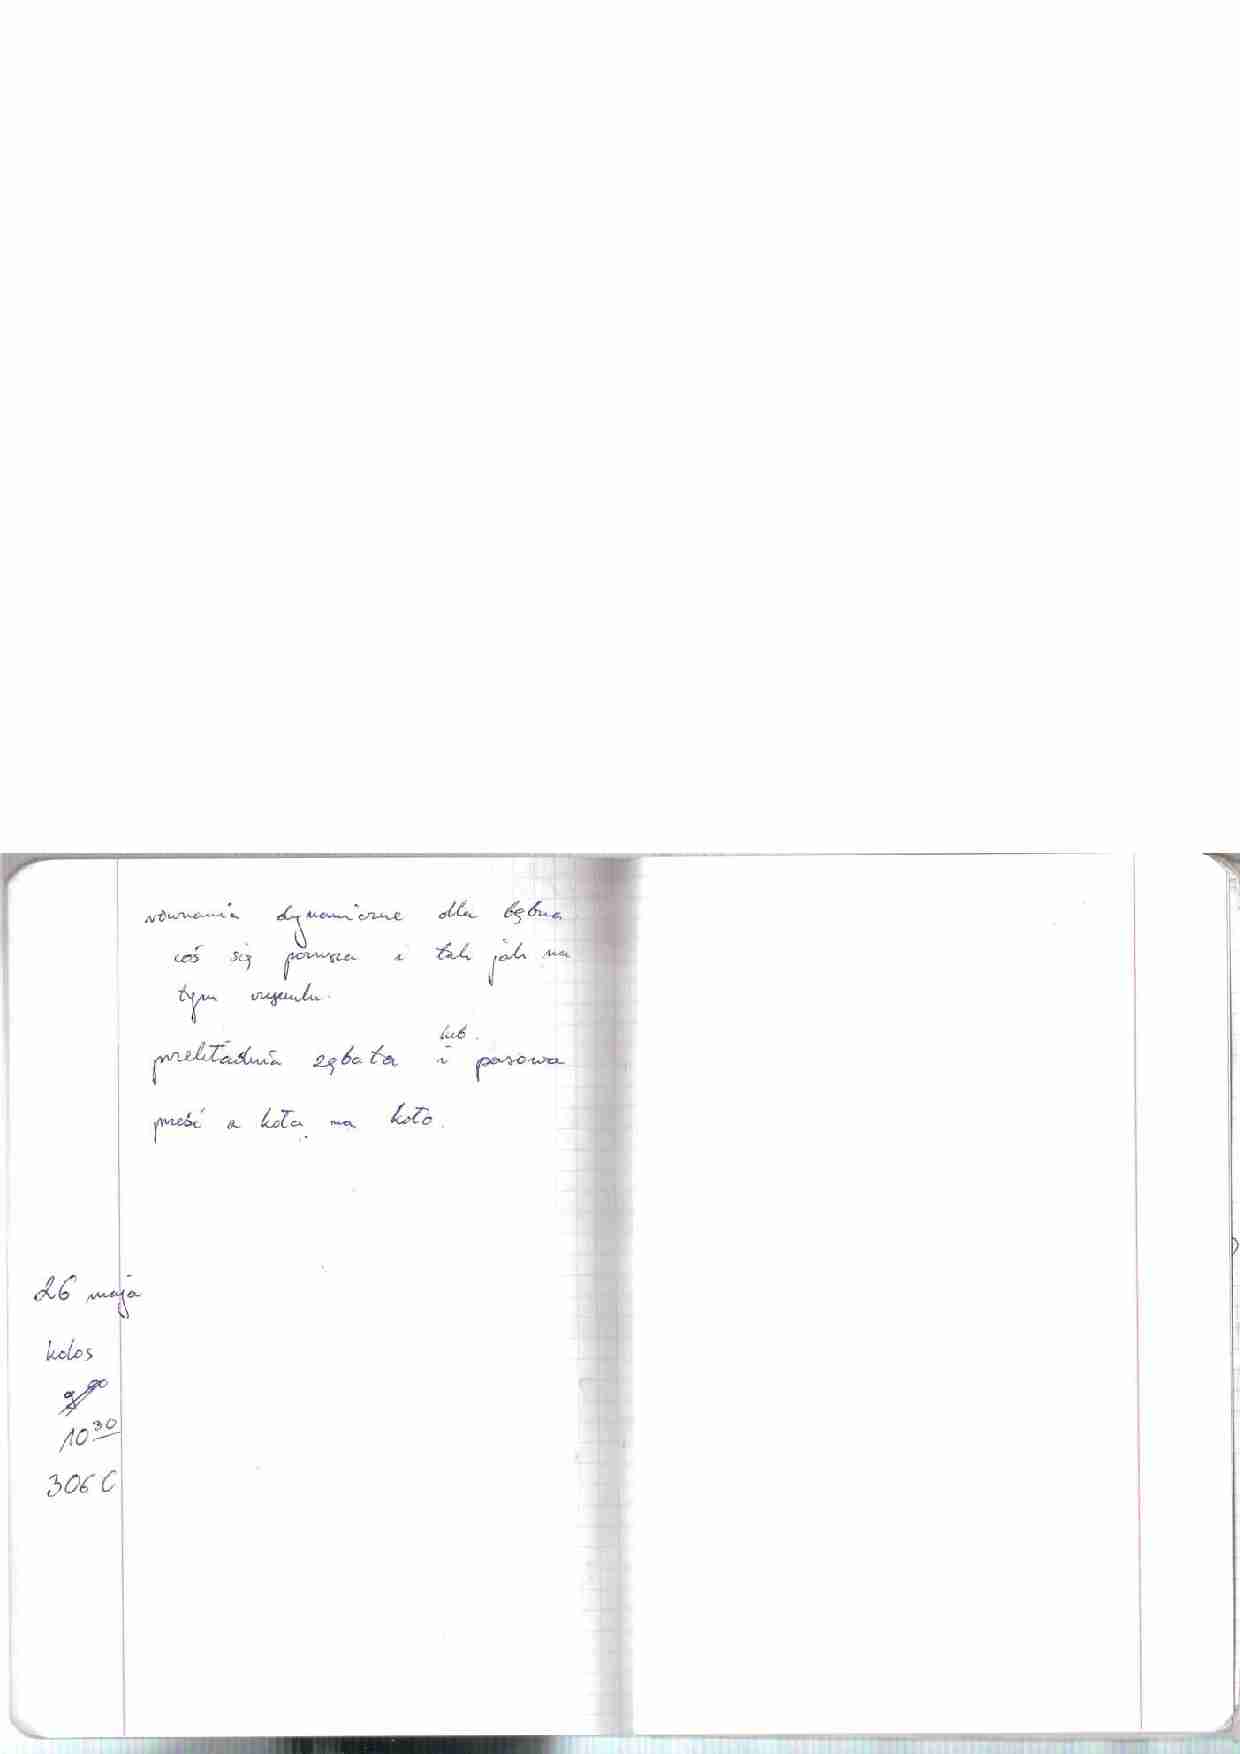 równania dynamiczne dla bębna
coś się porusza i tak jak na
tym rysunku.
przekładnia zębata i pasowa
lub.
przejść z koła na koło.
26 maja
kolos
10 30
306 C